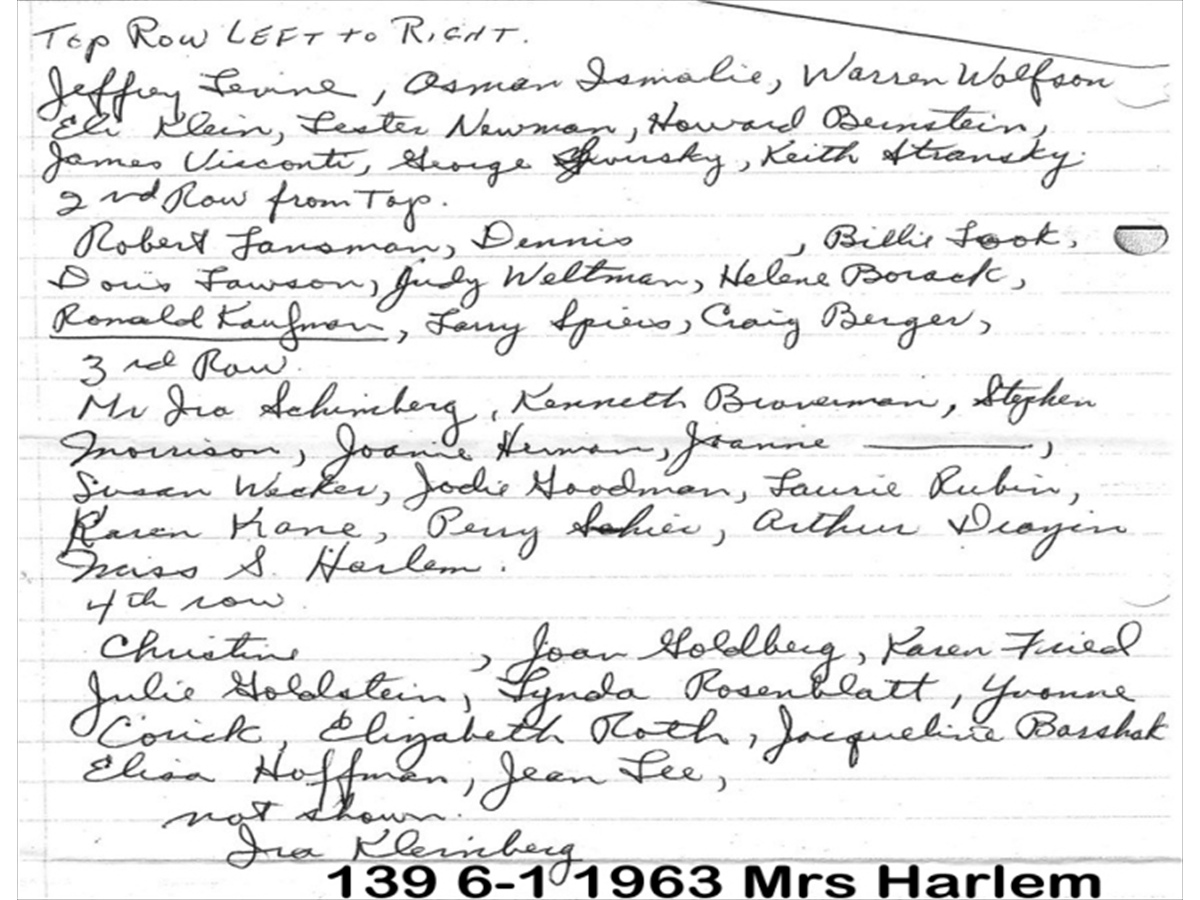 Top Row LEFT to RIGHT.
Jeffrey Levine, Osman Ismalie, Warren Wolfson
Eli Klein, Lester Newman, Howard Bernstein,
James Visconti, George , Keith Stransky.
2nd Row from Top.
Robert Lansman, Dennis , Billie Look,
Doris Lawson, Judy Weltman, Helene Borack,
Ronald Kaufman, Larry Spiers, Craig Berger,
3rd Row.
Mr Ira Schimberg, Kenneth Braverman, Stephen
Morrison, Joanie Herman, Joanne ———,
Susan Wecker, Jodie Goodman, Laurie Rubin,
Karen Kane, Perry Schier, Arthur Drayin
Miss S. Harlem.
4th row.
Christine , Joan Goldberg, Karen Fried
Julie Goldstein, Lynda Rosenblatt, Yvonne
Corick, Elizabeth Roth, Jacqueline Barshak
Elisa Hoffman, Jean Lee,
not shown.
Ira Kleinberg
139 6-1 1963 Mrs Harlem